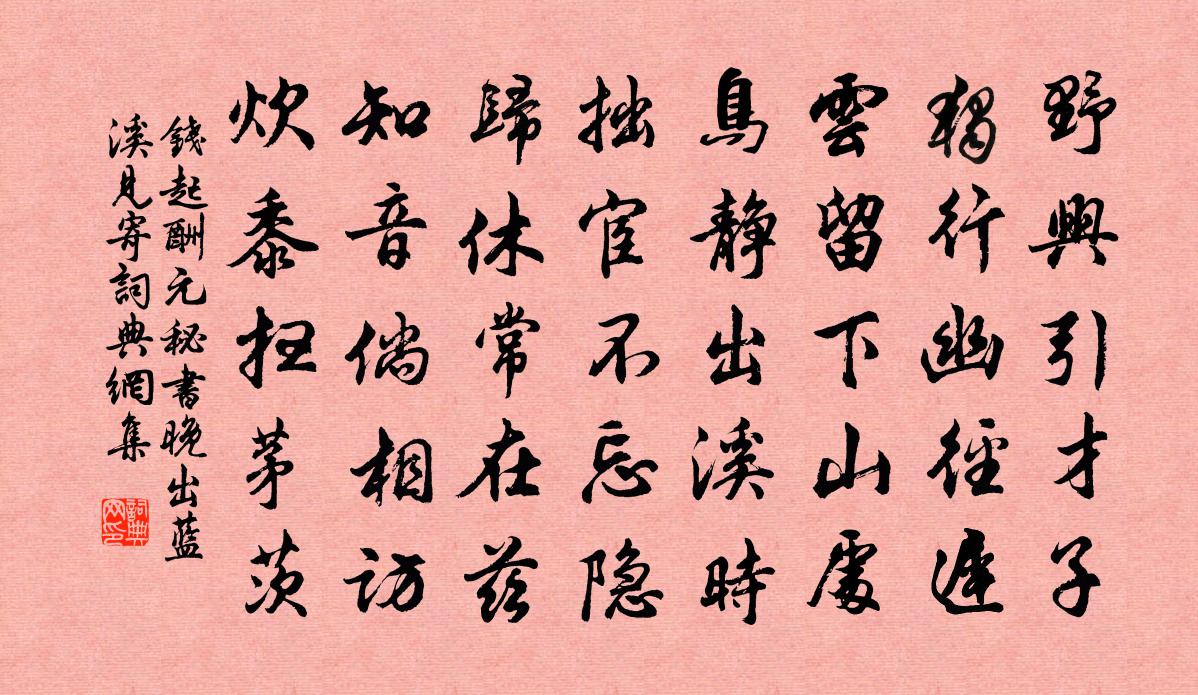 野興引才子
獨行幽徑遲
雲留下山處
鳥靜出溪時
拙宦不忘隐
歸休常在茲
知音倘相訪
炊黍扫茅茨
錢起酬元秘書晚出藍
溪見寄詞典網集
詞典
网印